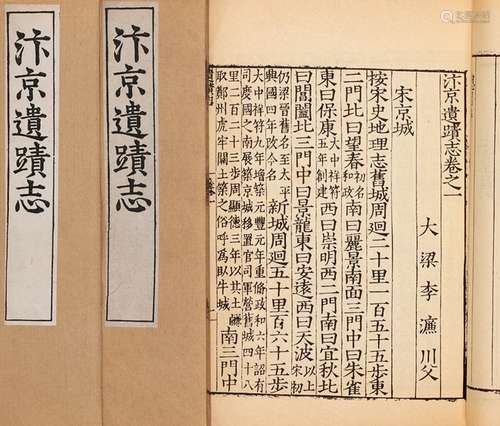 汴京遺蹟志
汴京遺蹟志
汴京遺蹟志卷之一
大梁李濂川父
宋京城
按宋史地理志舊城周迴二十里一百五十五步東
二門北曰望春初名和政南曰麗景南面三門中曰朱雀
東曰保康大中祥符五年創建西曰崇明西二門南曰宜秋北
曰閶闔北三門中曰景龍東曰安遠西曰天波以上宋初
仍梁晉舊名至太平興國四年改今名新城周迴五十里百六十五步
大中祥符九年增築元豐元年重修政和六年詔有司度國之南展築京城移置官司軍營舊城四十八
里二百二十三步周顯德三年以其土鹻取鄭州虎牢關土築之俗呼爲臥牛城南三門中